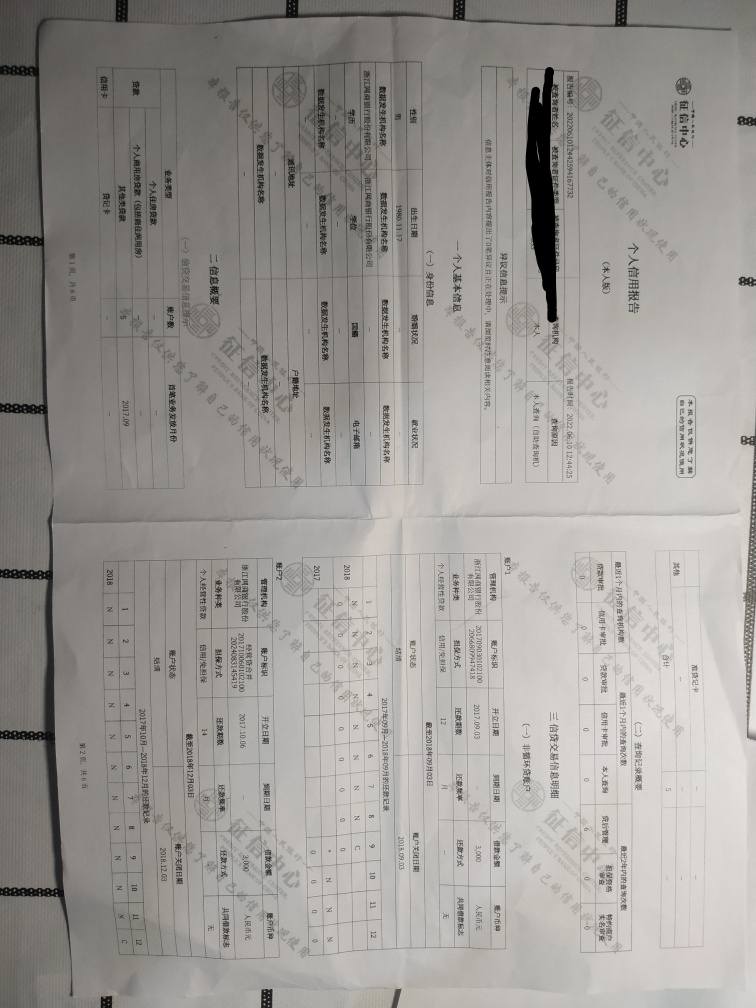 征信中心
个人信用报告
（本人版）
本报告仅供您了解
自己的信用状况使用
报告编号：2022061012442594167732 报告时间：2022.06.10 12:44:25
被查询者姓名 被查询者证件类型 查询机构 查询原因
本人 本人查询（自助查询机）
异议信息提示
信息主体对信用报告内容提出了0笔异议且正在处理中，请浏览时注意阅读相关内容。
一 个人基本信息
（一）身份信息
性别 出生日期 婚姻状况 就业状况
男 1980.11.17 - -
数据发生机构名称 数据发生机构名称 数据发生机构名称 数据发生机构名称
浙江网商银行股份有限公司 浙江网商银行股份有限公司 - -
学历 学位 国籍 电子邮箱
- - - -
数据发生机构名称 数据发生机构名称 数据发生机构名称 数据发生机构名称
- - - -
通讯地址 户籍地址
- -
数据发生机构名称 数据发生机构名称
- -
二 信息概要
（一）信贷交易信息提示
业务类型 账户数 首笔业务发放月份
贷款 个人住房贷款 - -
个人商用房贷款（包括商住两用房） - -
其他类贷款 5 2017.09
信用卡 贷记卡 - -
第 1 页，共 6 页
准贷记卡 - -
其他 - - -
合计 5 -
（二）查询记录概要
最近1个月内的查询机构数 最近1个月内的查询次数 最近2年内的查询次数
贷款审批 信用卡审批 贷款审批 信用卡审批 本人查询 贷后管理 担保资格审查 特约商户实名审查
0 0 0 0 0 6 0 0
三 信贷交易信息明细
（一）非循环贷账户
账户1
管理机构 账户标识 开立日期 到期日期 借款金额 账户币种
浙江网商银行股份有限公司 2017.09.03 - 3,000 人民币元
业务种类 担保方式 还款期数 还款频率 还款方式 共同借款标志
个人经营性贷款 信用/免担保 12 月 - 无
截至2018年09月03日
账户状态 账户关闭日期
结清 2018.09.03
2017年09月—2018年09月的还款记录
1 2 3 4 5 6 7 8 9 10 11 12
2018 N N N N N N N N C
0 0 0 0 0 0 0 0 0
2017 * N N N
0 0 0 0
账户2
管理机构 账户标识 开立日期 到期日期 借款金额 账户币种
浙江网商银行股份有限公司 2017.10.06 - 3,000 人民币元
业务种类 担保方式 还款期数 还款频率 还款方式 共同借款标志
个人经营性贷款 信用/免担保 14 月 - 无
截至2018年12月03日
账户状态 账户关闭日期
结清 2018.12.03
2017年10月—2018年12月的还款记录
1 2 3 4 5 6 7 8 9 10 11 12
2018 N N N N N N N N N N N C
第 2 页，共 6 页